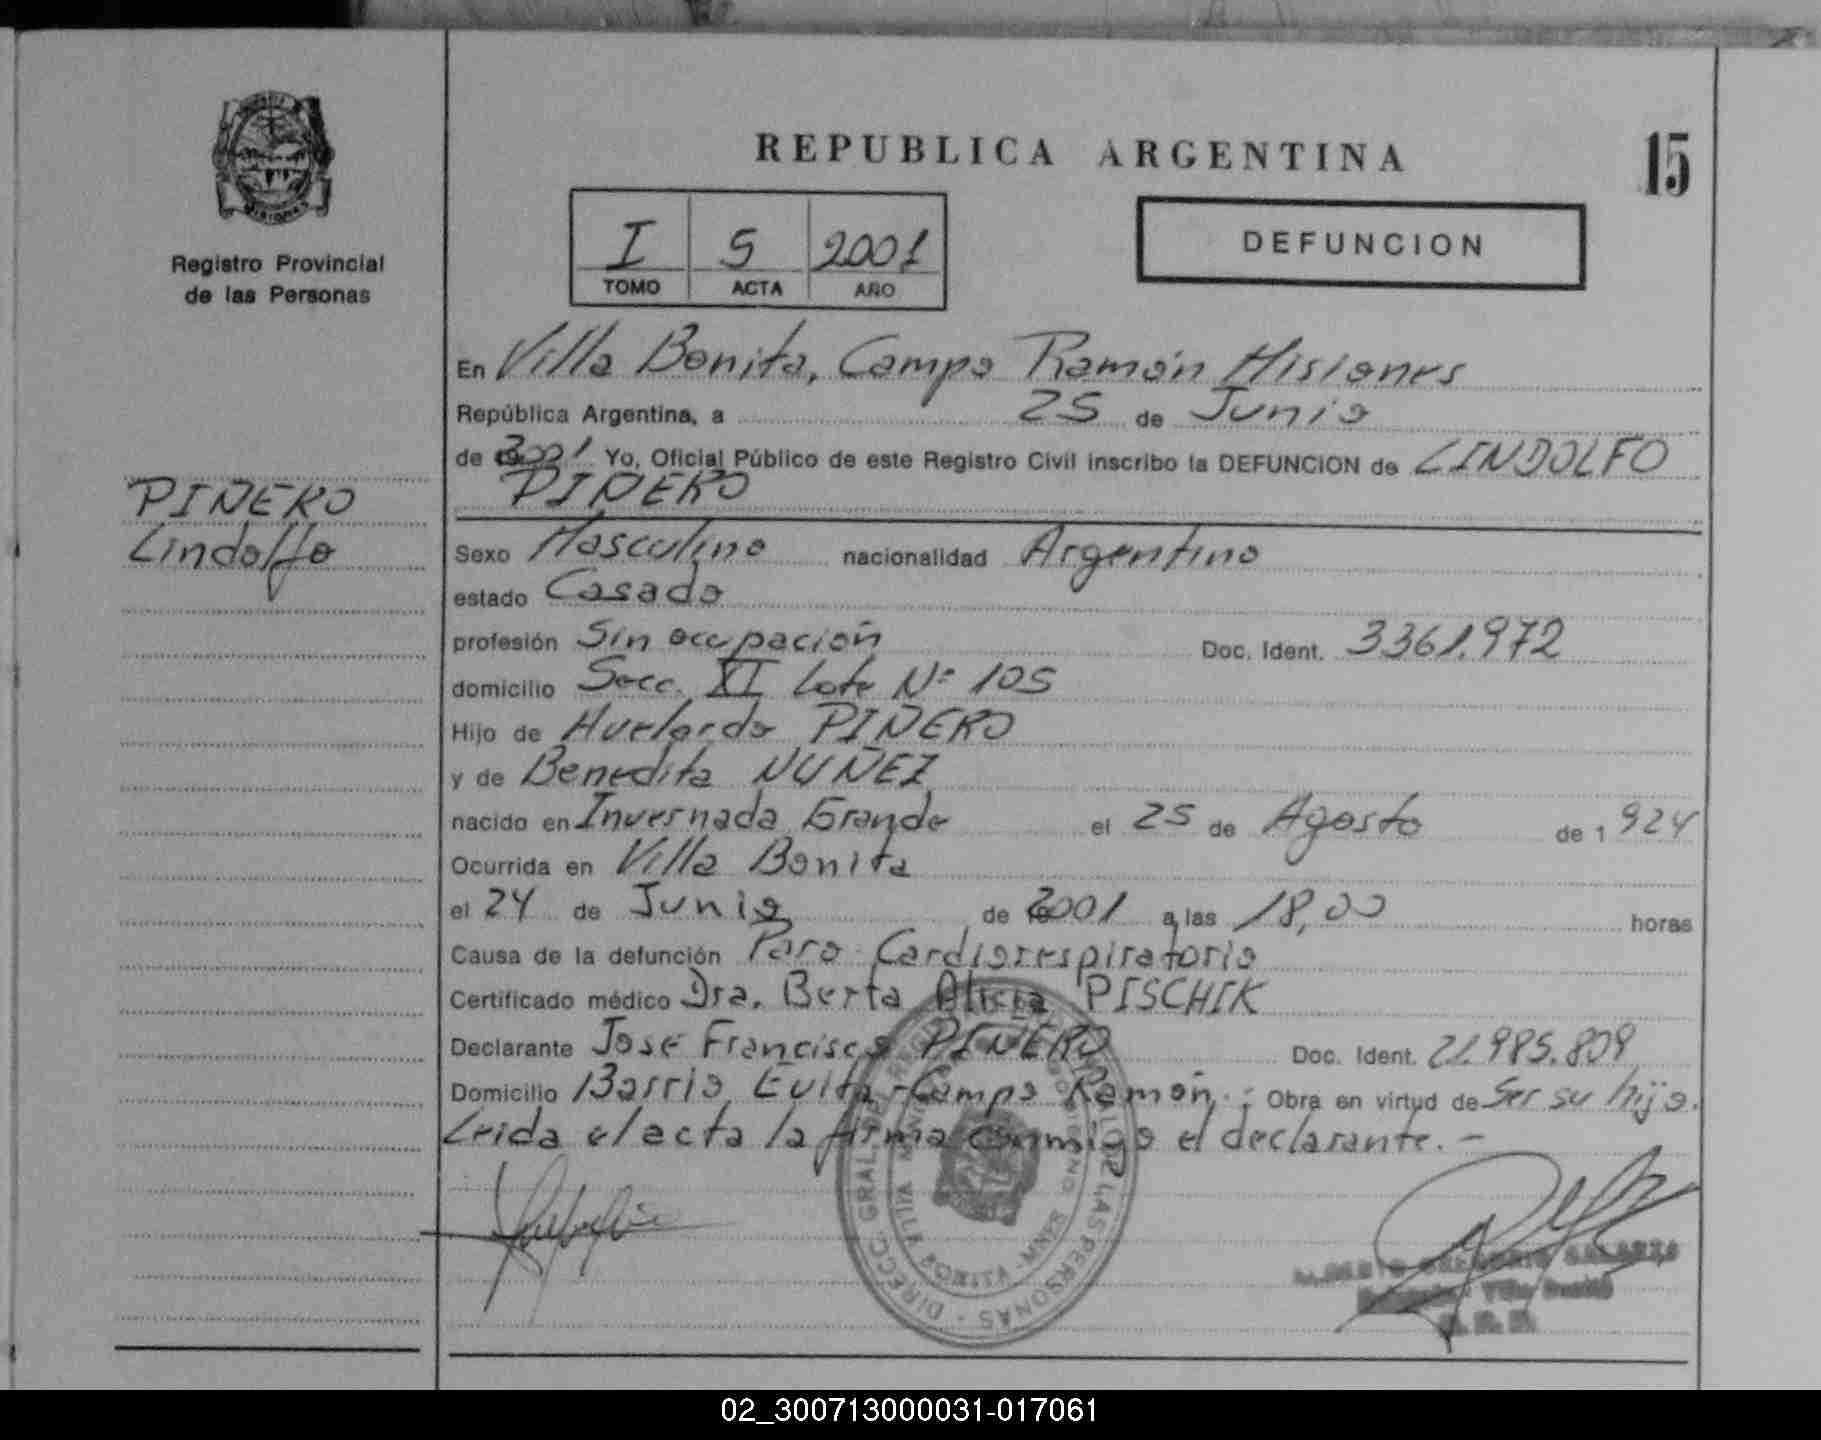 REPUBLICA ARGENTINA
15
MISIONES
Registro Provincial
de las Personas
I 5 2001
TOMO ACTA AÑO
DEFUNCION
En Villa Bonita, Campo Ramón Misiones
República Argentina, a 25 de Junio
de 2001 Yo, Oficial Público de este Registro Civil inscribo la DEFUNCION de LINDOLFO
PIÑERO
PIÑERO
Lindolfo
Sexo Masculino nacionalidad Argentino
estado Casado
profesión Sin ocupación Doc. Ident. 3361.972
domicilio Secc. XI Lote Nº 105
Hijo de Huelardo PIÑERO
y de Benedita NUÑEZ
nacido en Invernada Grande el 25 de Agosto de 1924
Ocurrida en Villa Bonita
el 24 de Junio de 2001 a las 18,00 horas
Causa de la defunción Paro Cardiorrespiratorio
Certificado médico Dra. Berta Alicia PISCHIK
Declarante José Francisco PIÑERO Doc. Ident. 21.985.809
Domicilio Barrio Evita-Campo Ramón.; Obra en virtud de Ser su hijo.
Leida el acta la firma conmigo el declarante.-
DIRECC. GRAL. DE LAS PERSONAS
VILLA BONITA - MNES
GOBIERNO
02_300713000031-017061